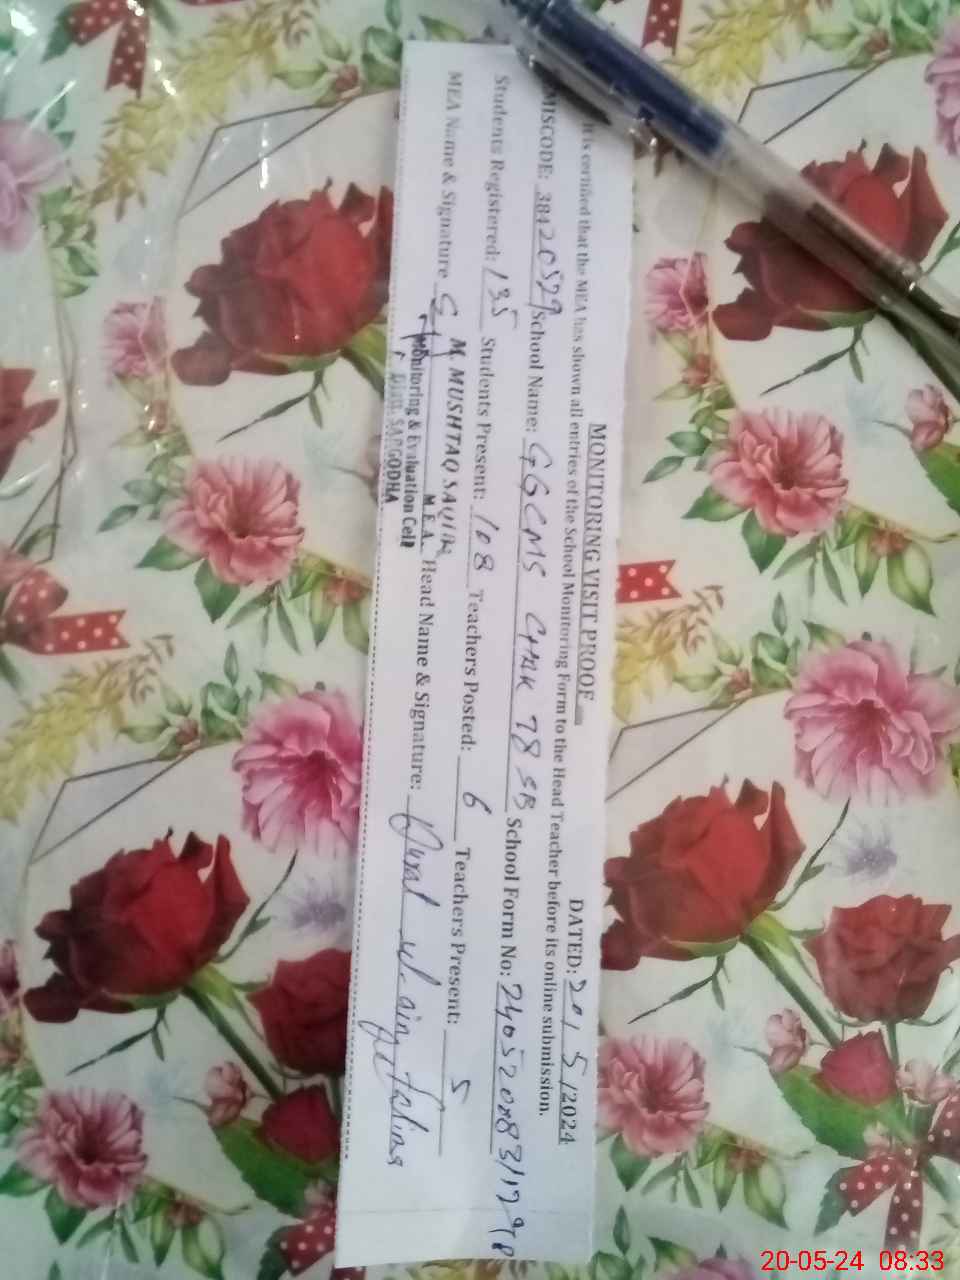 MONITORING VISIT PROOF
DATED: 20/5/2024
It is certified that the MEA has shown all entries of the School Monitoring Form to the Head Teacher before its online submission.
MISCODE: 38420529 School Name: GGCMS CHAK 78 SB School Form No:
Students Registered: 135 Students Present: 108 Teachers Posted: 6 Teachers Present: 5
MEA Name & Signature M. MUSHTAQ SAQIB Head Name & Signature:
M.E.A.
Monitoring & Evaluation Cell
Distt. SARGODHA
20-05-24 08:33